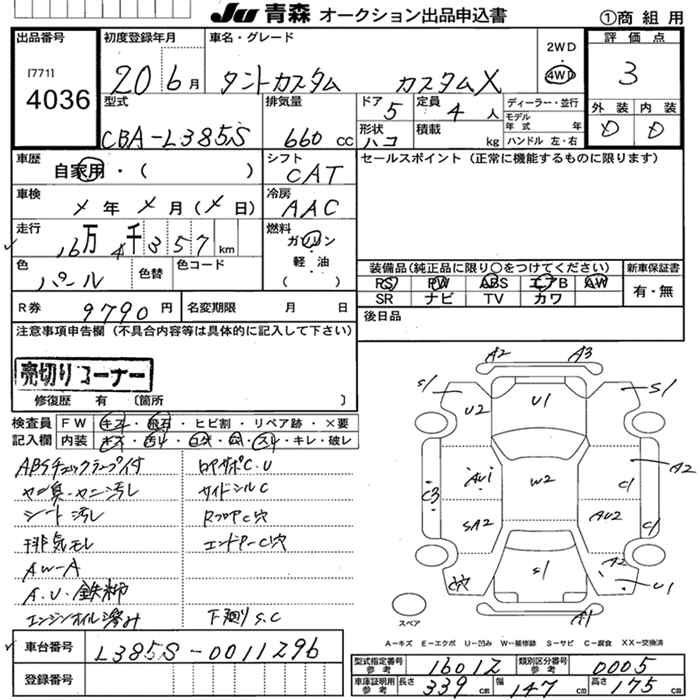 JU 青森 オークション出品申込書
①商組用
出品番号
[771]
4036
初度登録年月
20 6月
車名・グレード
タントカスタム カスタムX
2WD
4WD
評価点
3
外装 内装
D D
型式
CBA-L385S
排気量
660 cc
ドア
5
定員
4 人
ディーラー・並行
モデル年式 年
ハンドル 左・右
形状
ハコ
積載
kg
車歴
自家用・( )
シフト
CAT
セールスポイント(正常に機能するものに限ります)
車検
メ 年 メ 月(メ日)
冷房
AAC
走行
16万 4千 357 km
燃料
ガソリン
軽・油
( )
色
パール
色替
色コード
装備品(純正品に限り○をつけてください)
新車保証書
RS PW ABS エアB AW
有・無
SR ナビ TV カワ
R券
9790 円
名変期限 月 日
後日品
注意事項申告欄(不具合内容等は具体的に記入して下さい)
売切りコーナー
修復歴 有 〔箇所 〕
検査員記入欄
FW キズ・飛石・ヒビ割・リペア跡・×要
内装 キズ・
・キレ・破レ
ABSチェックランプ付
ヤニ臭・ヤニ汚レ
シート汚レ
排気モレ
AW-A
A.U.鉄粉
エンジンオイル滲み
ロアサポC.U
サイドシルC
RフロアC穴
エンドアーC穴
下廻りS.C
A2 A3
S1 U2 U1 S1
A2
AU1 W2 C1
C3
SA2 AU2 C1
C穴 S1 A2 U1
A1
スペア
A-キズ E-エクボ U-凹み W-補修跡 S-サビ C-腐食 XX-交換済
車台番号
L385S-0011296
登録番号
型式指定番号 参考
16012
類別区分番号 参考
0005
車庫証明用 参考
長さ 339 cm 幅 147 cm 高さ 175 cm